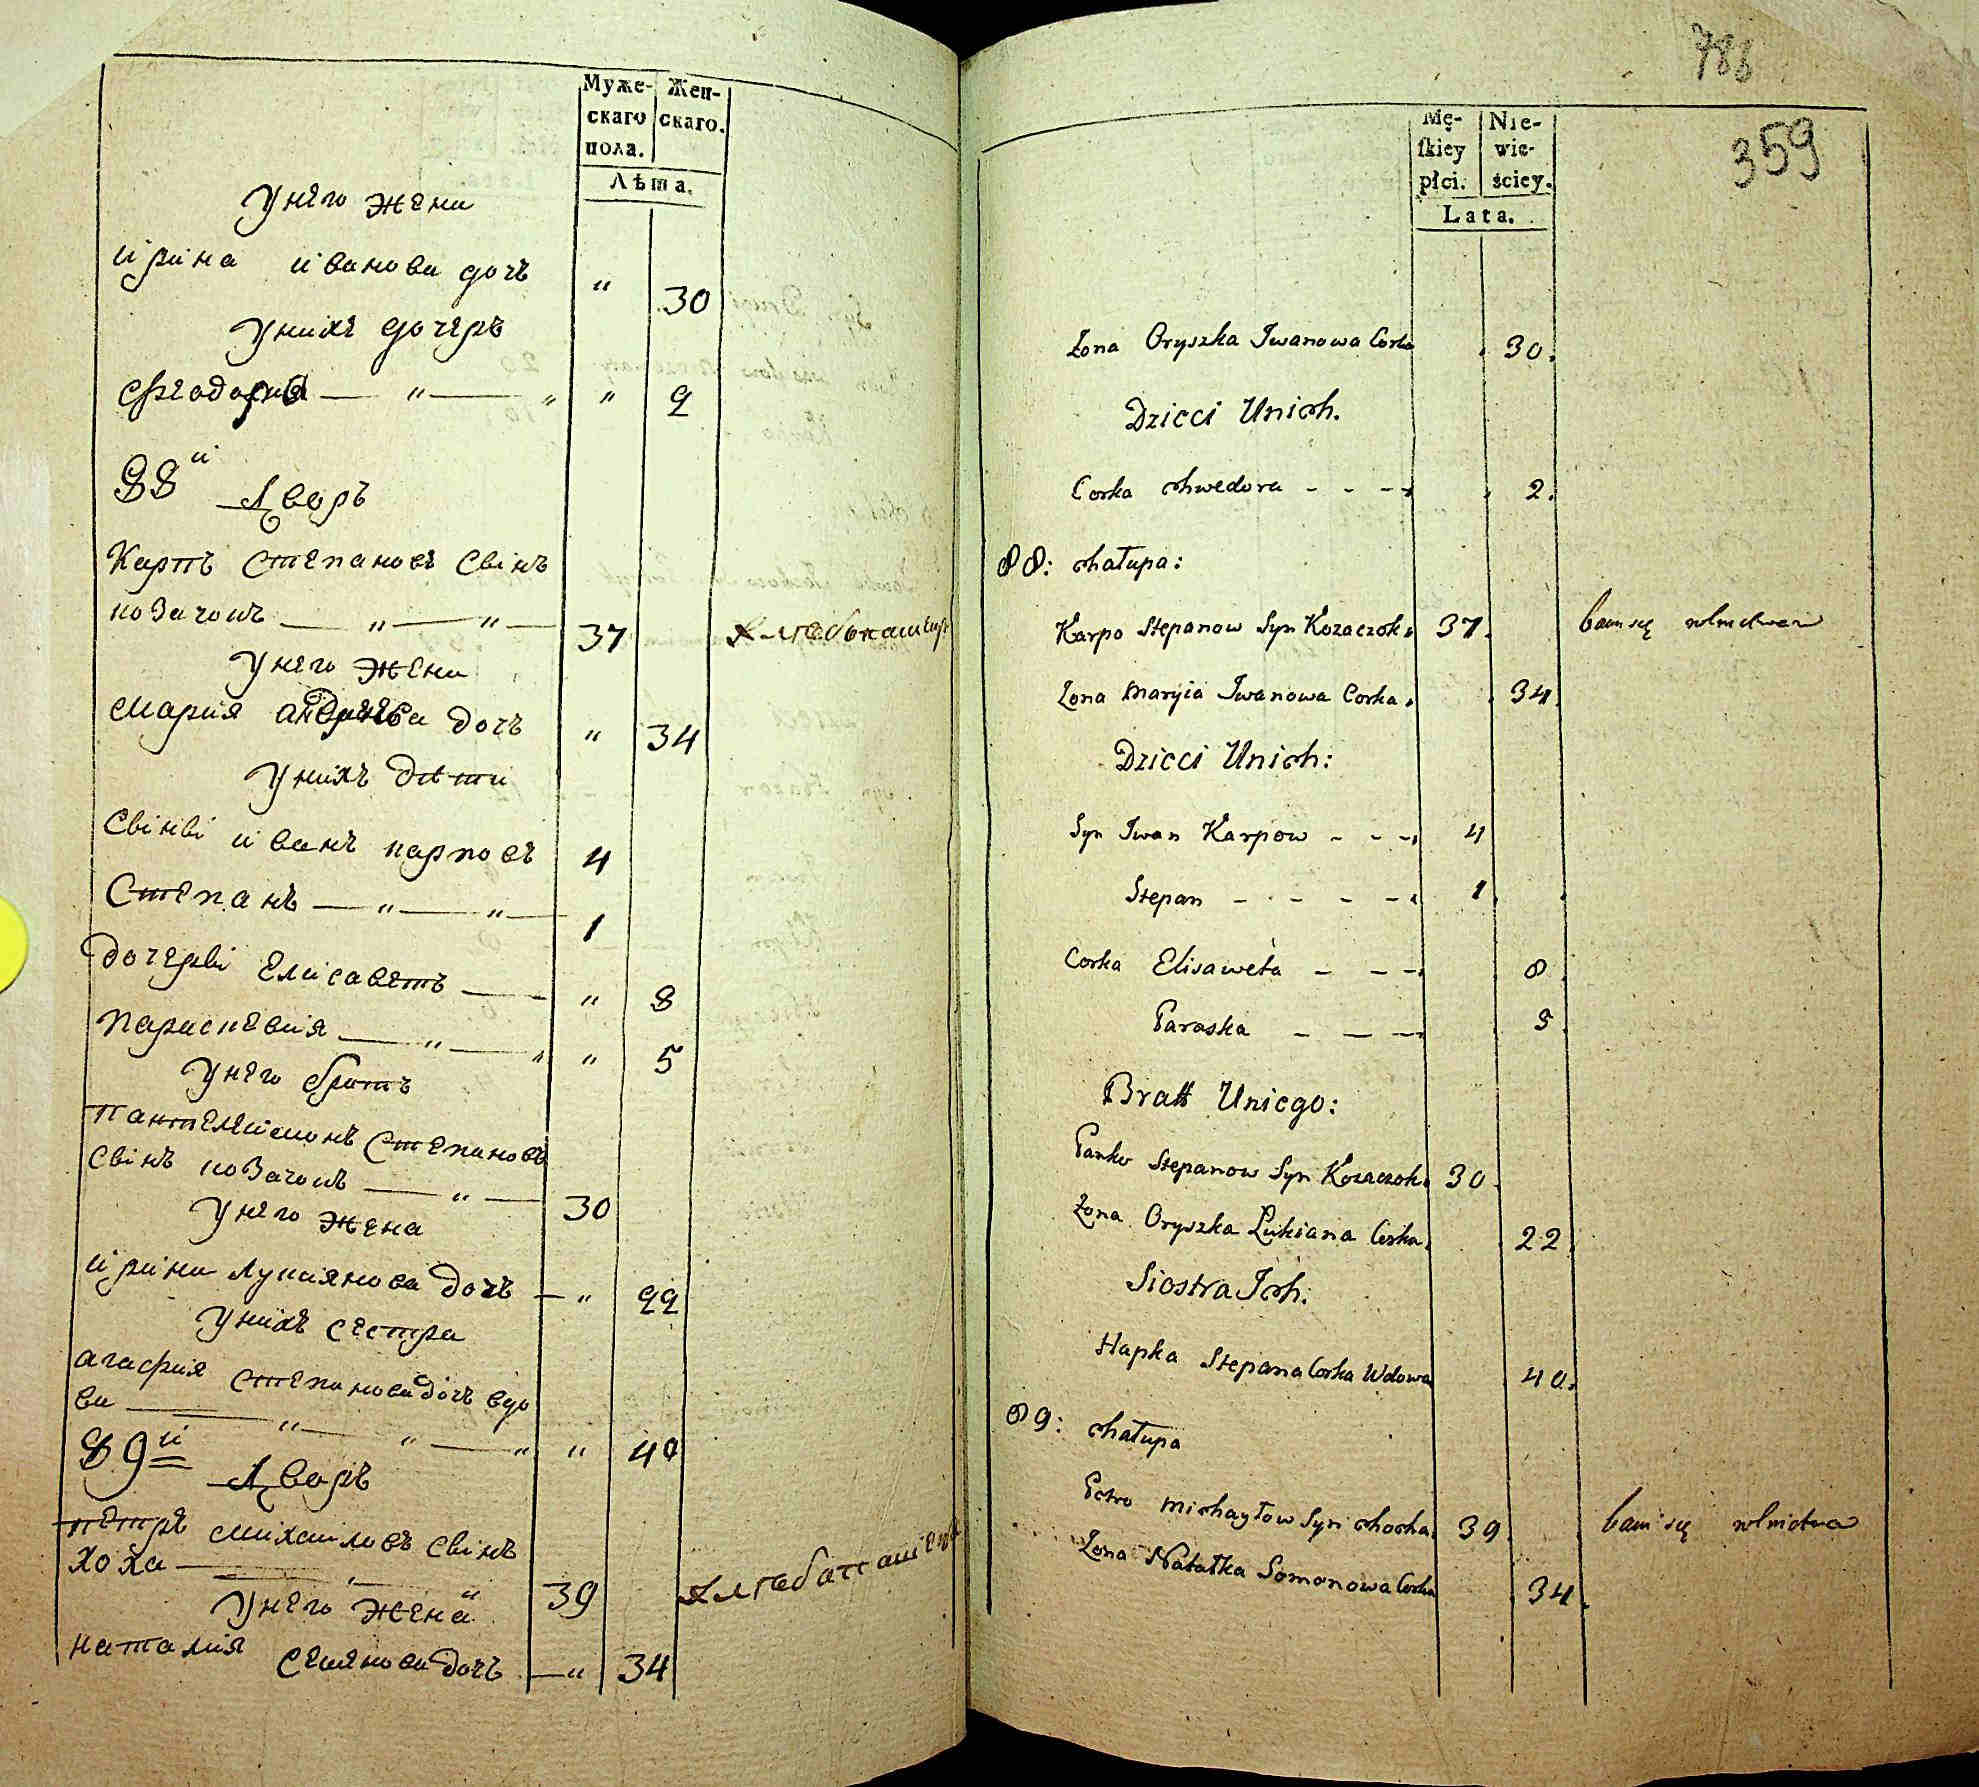 Муже- Жен-
скаго скаго.
пола.
Лѣта.
унего жена
ирина иванова дочъ " 30
унихъ дочеръ
Феодория — " — " " 2
88й Дворъ
Карпъ Степановъ Синъ
козачокъ — " — " — 37 хлѣбопашецъ
унего жена
Мария андреева дочъ " 34
унихъ дѣти
Сынві иванъ карповъ 4
Степанъ — " — " — 1
дочерві Елисаветъ — " 8
Параскевия — " — " " 5
унего братъ
пантелеимонъ Степановъ
Синъ козачокъ — " — 30
унего жена
ирина лукиянова дочъ — " 22
унихъ сестра
агафия степанова дочъ вдо
ва — " — " — " " 40
89й Дворъ
петръ михаиловъ Синъ
хоха — " — " 39 хлѣбопашецъ
унего жена
наталия семянова дочъ — " 34
788
359
Mę- Nie-
skiey wie-
płci. ściey.
Lata.
Żona Oryszka Iwanowa Corka 30.
Dzieci Unich.
Corka Chwedora - - - 2.
88: chałupa:
Karpo Stepanow Syn Kozaczok 37. bawi się rolnictwem
Żona Maryia Iwanowa Corka 34
Dzieci Unich:
Syn Iwan Karpow - - - 4
Stepan - - - - 1
Corka Elisaweta - - - 8
Paraska - - - 5
Bratt Uniego:
Panko Stepanow Syn Kozaczok 30.
Żona Oryszka Lukiana Corka 22.
Siostra Ich.
Hapka Stepana Corka Wdowa 40.
89: chałupa
Petro Michayłow Syn Chocha 39. bawi się rolnictwa
Żona Natałka Somonowa Corka 34.